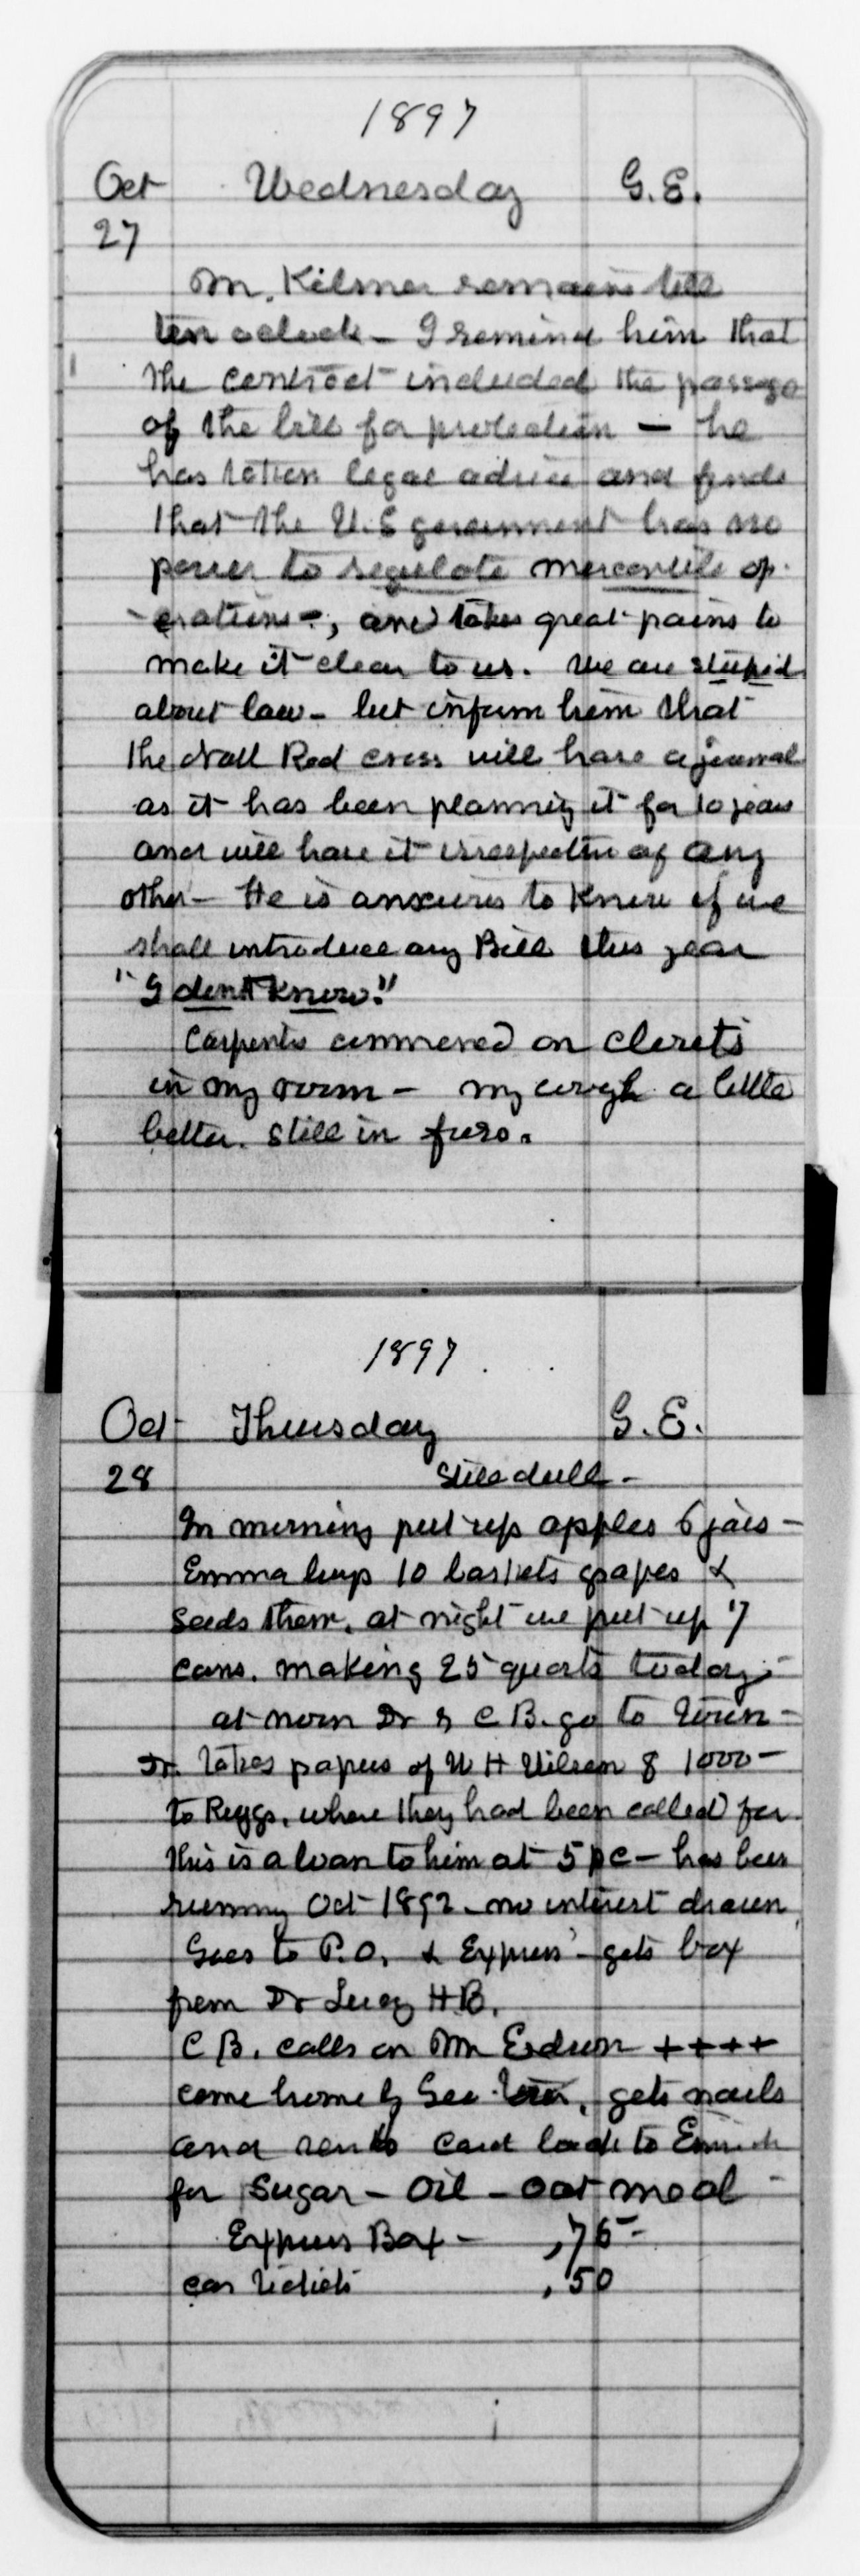 1897
Oct Wednesday G.E.
27
Mr. Kilmer remains till
ten oclock - I remind him that
the contract included the passage
of the bill for protection - he
has taken legal advice and finds
that the U.S government has no
power to regulate mercantile op-
erations -, and takes great pains to
make it clear to us. We are stupid
about law - but inform him that
the Natl Red cross will have a journal
as it has been planning it for 10 years
and will have it irrespective of any
other - He is anxious to know if we
shall introduce any Bill this year
"I dont know."
Carpenter commenced on closets
in my room - my cough a little
better. Still in furs.
1897
Oct Thursday G.E.
28 Still dull -
In morning put up apples 6 jars -
Emma buys 10 baskets grapes &
seeds them, at night we put up 7
cans. making 25 quarts today -
at noon Dr & C B. go to town -
Dr. takes papers of W H Wilson $ 1000 -
to Riggs, where they had been called for.
This is a loan to him at 5 pc - has been
running Oct 1892 - no interest drawn
Goes to P.O. & Express - gets box
from Dr Lucy H.B.
C B. calls on Mr ++++
come home by Geo. Town, gets nails
and sends card back to
for Sugar - Oil - Oat meal -
Express Box - ,75 -
car tickets ,50